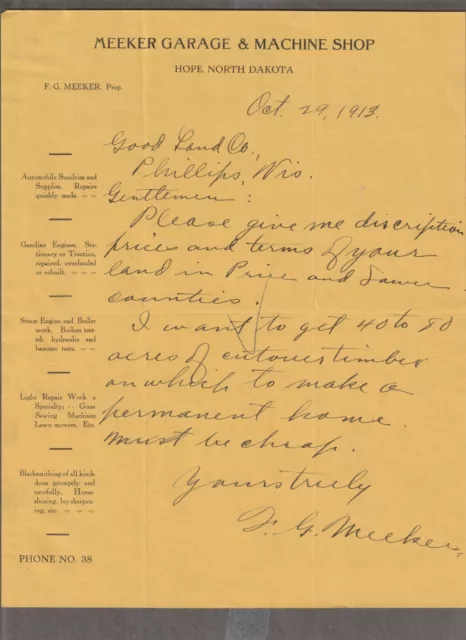 MEEKER GARAGE & MACHINE SHOP
HOPE, NORTH DAKOTA
F. G. MEEKER, Prop.
Oct. 29, 1913.
Good Land Co.,
Phillips, Wis.
Gentlemen:
Please give me discription
prices and terms of your
land in Price and
counties.
I want to get 40 to 80
acres of cutover timber
on which to make a
permanent home.
Must be cheap.
Yours truly
F. G. Meeker
Automobile Sundries and
Supplies. Repairs
quickly made.
Gasoline Engines, Sta-
tionary or Traction,
repaired, overhauled
or rebuilt.
Steam Engine and Boiler
work. Boilers test-
ed: hydraulic and
hammer tests.
Light Repair Work a
Specialty: Guns
Sewing Machines
Lawn mowers, Etc.
Blacksmithing of all kinds
done promptly and
carefully. Horse-
shoeing, lay sharpen-
ing, etc.
PHONE NO. 38